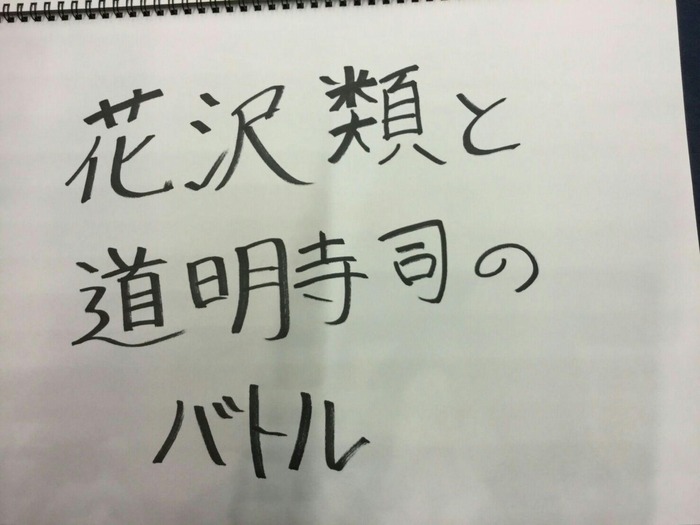 花沢類と
道明寺司の
バトル